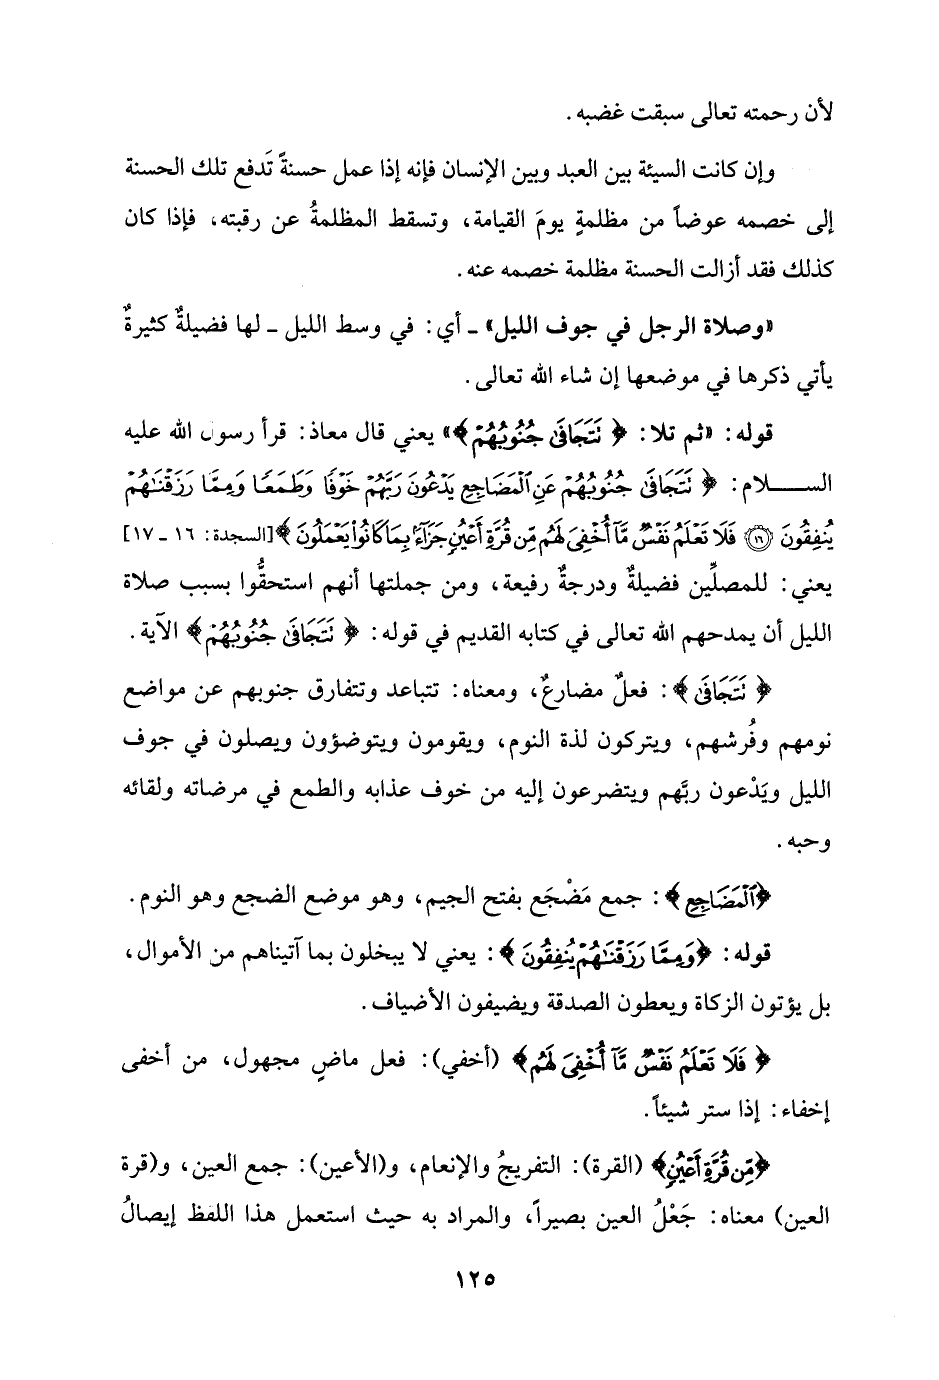 لأن رحمته تعالى سبقت غضبه.
وإن كانت السيئة بين العبد وبين الإنسان فإنه إذا عمل حسنةً تَدفع تلك الحسنة
إلى خصمه عوضاً من مظلمةٍ يومَ القيامة، وتسقط المظلمةُ عن رقبته، فإذا كان
كذلك فقد أزالت الحسنة مظلمة خصمه عنه.
«وصلاة الرجل في جوف الليل» ـ أي: في وسط الليل ـ لها فضيلةٌ كثيرةٌ
يأتي ذكرها في موضعها إن شاء الله تعالى.
قوله: «ثم تلا: ﴿نَتَجَافَى جُنُوبُهُمْ﴾» يعني قال معاذ: قرأ رسول الله عليه
الســـلام: ﴿نَتَجَافَى جُنُوبُهُمْ عَنِ ٱلْمَضَاجِعِ يَدْعُونَ رَبَّهُمْ خَوْفًا وَطَمَعًا وَمِمَّا رَزَقْنَٰهُمْ
يُنفِقُونَ ﴿١٦﴾ فَلَا تَعْلَمُ نَفْسٌ مَّآ أُخْفِىَ لَهُم مِّن قُرَّةِ أَعْيُنٍ جَزَآءًۢ بِمَا كَانُوا۟ يَعْمَلُونَ﴾ [السجدة: ١٦ ـ ١٧]
يعني: للمصلِّين فضيلةٌ ودرجةٌ رفيعة، ومن جملتها أنهم استحقُّوا بسبب صلاة
الليل أن يمدحهم الله تعالى في كتابه القديم في قوله: ﴿نَتَجَافَى جُنُوبُهُمْ﴾ الآية.
﴿نَتَجَافَى﴾: فعلٌ مضارعٌ، ومعناه: تتباعد وتتفارق جنوبهم عن مواضع
نومهم وفُرشهم، ويتركون لذة النوم، ويقومون ويتوضؤون ويصلون في جوف
الليل ويَدْعون ربَّهم ويتضرعون إليه من خوف عذابه والطمع في مرضاته ولقائه
وحبه.
﴿ٱلْمَضَاجِعِ﴾: جمع مَضْجَع بفتح الجيم، وهو موضع الضجع وهو النوم.
قوله: ﴿وَمِمَّا رَزَقْنَٰهُمْ يُنفِقُونَ﴾: يعني لا يبخلون بما آتيناهم من الأموال،
بل يؤتون الزكاة ويعطون الصدقة ويضيفون الأضياف.
﴿فَلَا تَعْلَمُ نَفْسٌ مَّآ أُخْفِىَ لَهُم﴾ (أخفي): فعل ماضٍ مجهول، من أخفى
إخفاء: إذا ستر شيئاً.
﴿مِّن قُرَّةِ أَعْيُنٍ﴾ (القرة): التفريجُ والإنعام، و(الأعين): جمع العين، و(قرة
العين) معناه: جَعْلُ العين بصيراً، والمراد به حيث استعمل هذا اللفظ إيصالُ
١٢٥